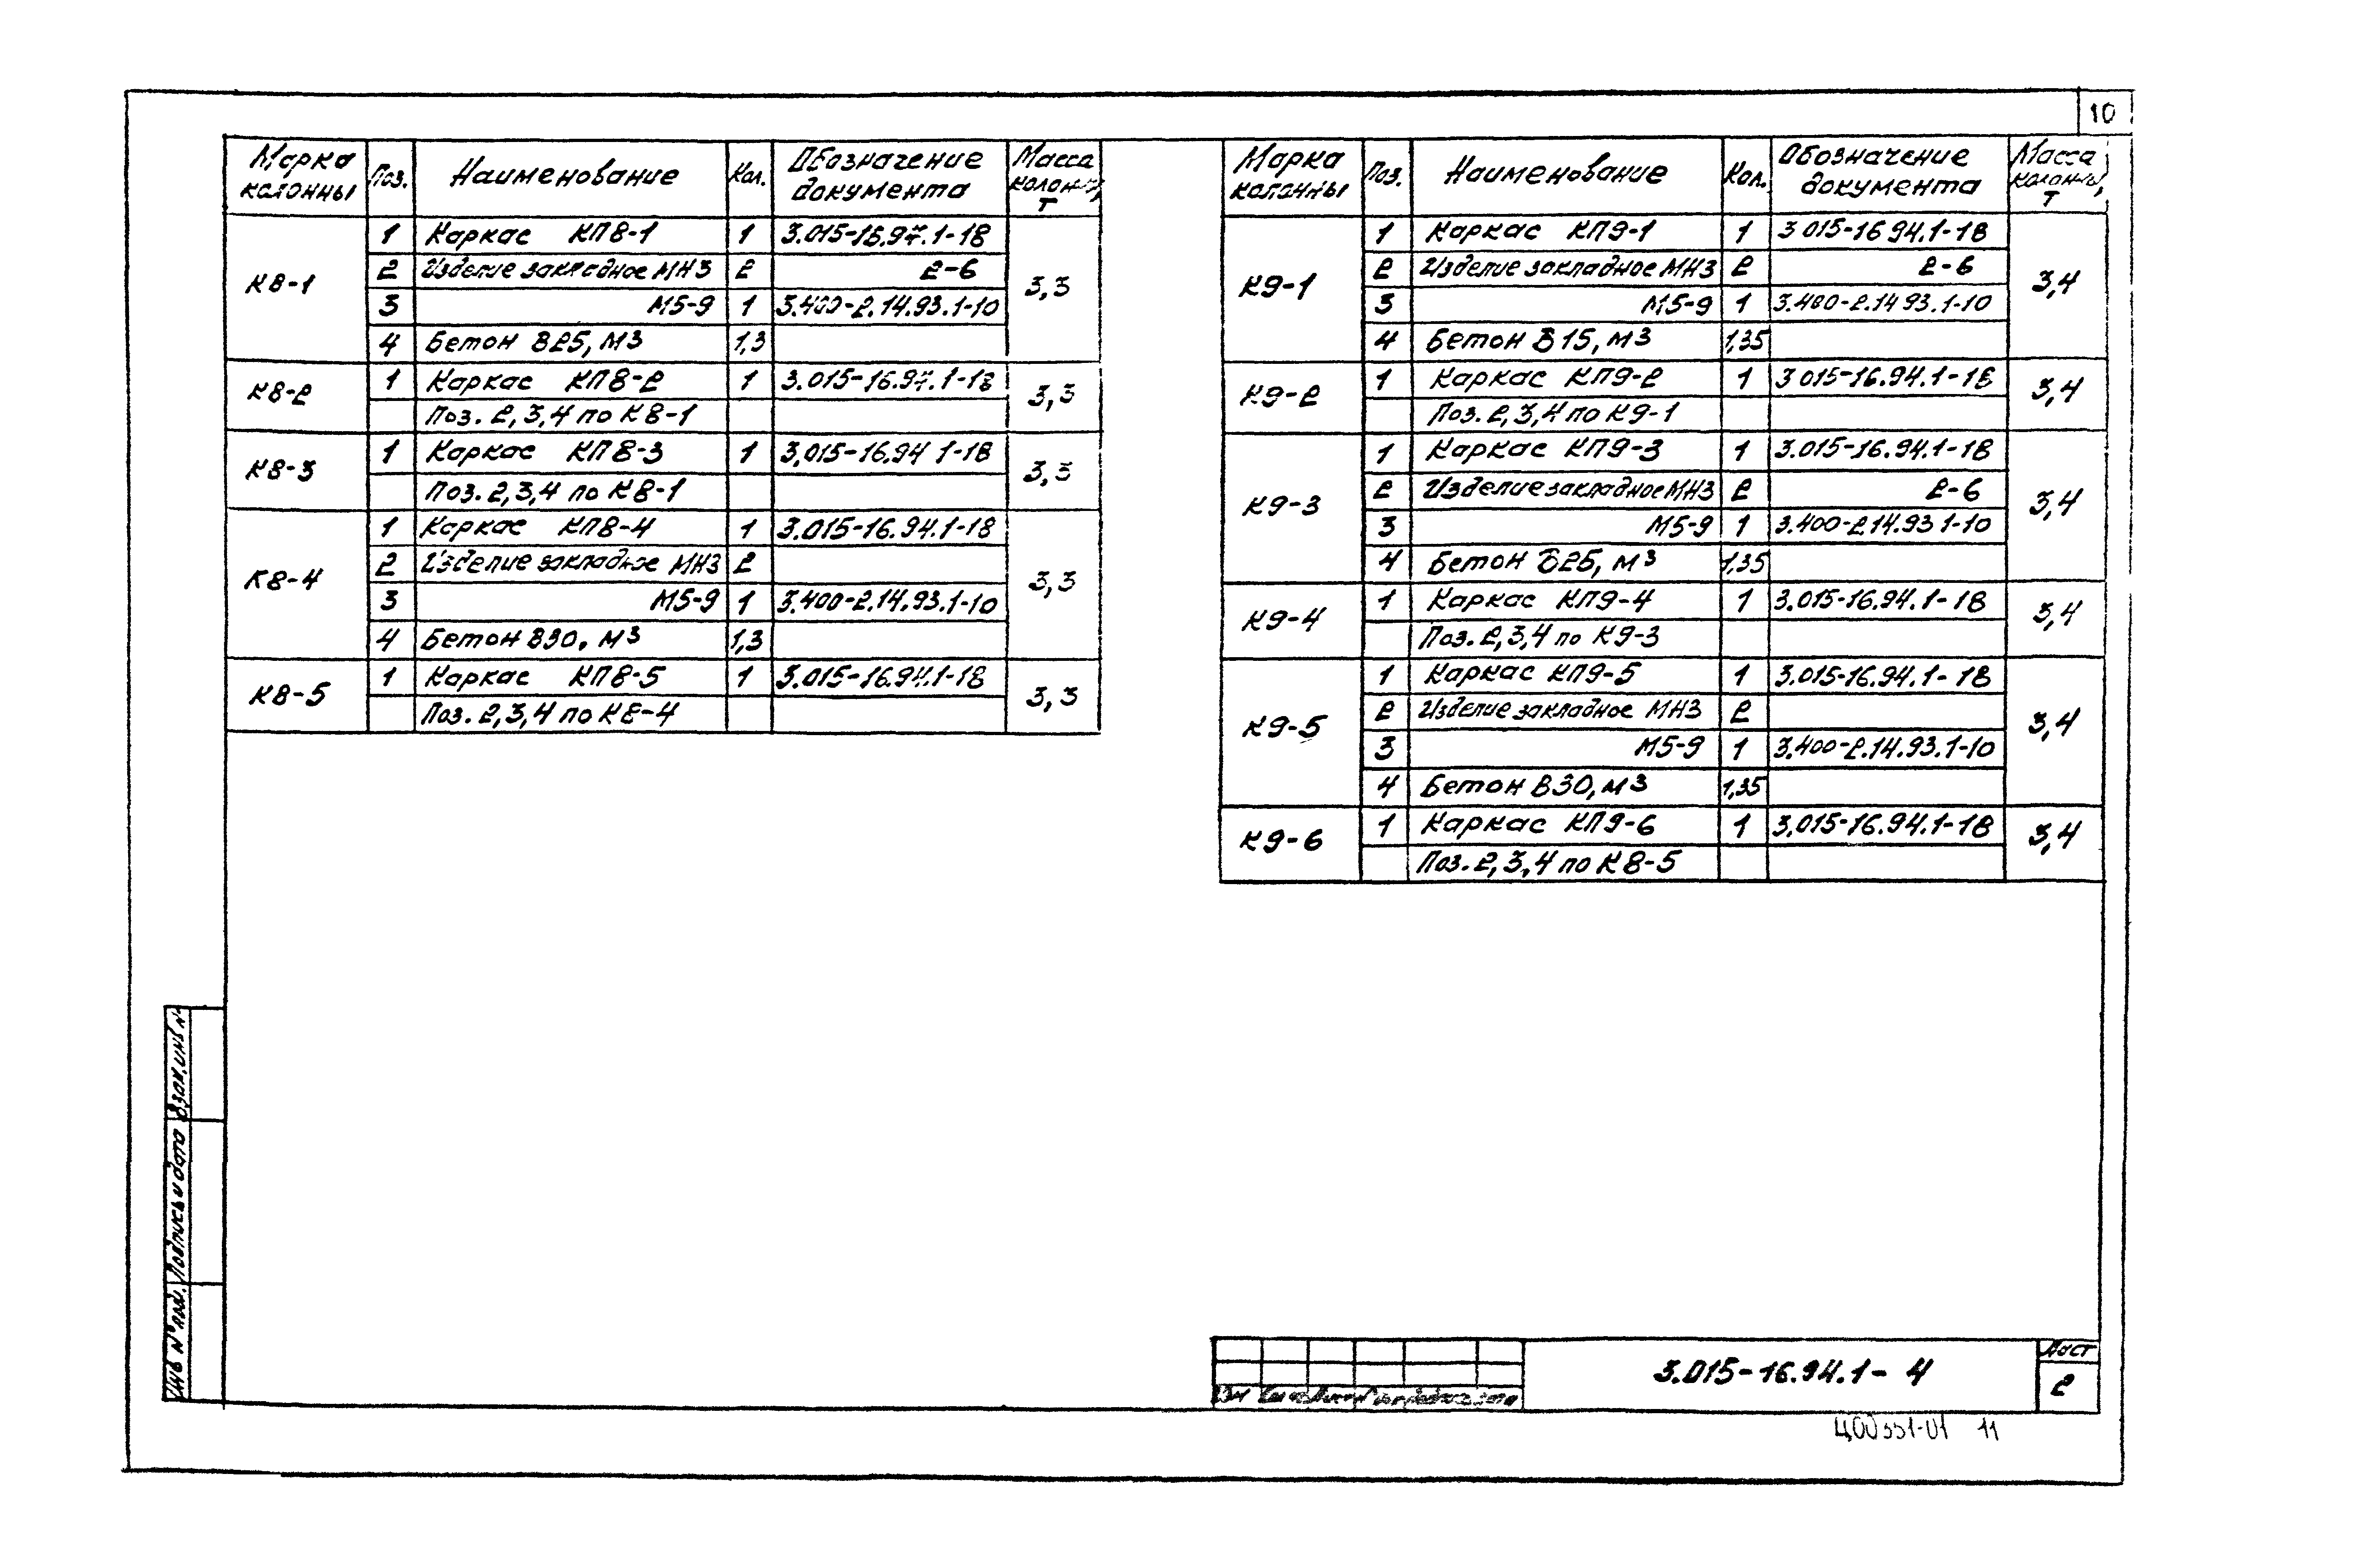 10
Марка колонны Поз. Наименование Кол. Обозначение документа Масса колонны, т
К8-1 1 Каркас КП8-1 1 3.015-16.94.1-18 3,3
2 Изделие закладное МН3 2 2-6
3 М5-9 1 3.400-2.14.93.1-10
4 Бетон В25, м3 1,3
К8-2 1 Каркас КП8-2 1 3.015-16.94.1-18 3,3
Поз. 2,3,4 по К8-1
К8-3 1 Каркас КП8-3 1 3.015-16.94 1-18 3,3
Поз. 2,3,4 по К8-1
К8-4 1 Каркас КП8-4 1 3.015-16.94.1-18 3,3
2 Изделие закладное МН3 2
3 М5-9 1 3.400-2.14.93.1-10
4 Бетон В30, м3 1,3
К8-5 1 Каркас КП8-5 1 3.015-16.94.1-18 3,3
Поз. 2,3,4 по К8-4
Марка колонны Поз. Наименование Кол. Обозначение документа Масса колонны, т
К9-1 1 Каркас КП9-1 1 3 015-16 94.1-18 3,4
2 Изделие закладное МН3 2 2-6
3 М5-9 1 3.400-2.14 93.1-10
4 Бетон В15, м3 1,35
К9-2 1 Каркас КП9-2 1 3 015-16.94.1-18 3,4
Поз. 2,3,4 по К9-1
К9-3 1 Каркас КП9-3 1 3.015-16.94.1-18 3,4
2 Изделие закладное МН3 2 2-6
3 М5-9 1 3.400-2.14.93 1-10
4 Бетон В25, м3 1,35
К9-4 1 Каркас КП9-4 1 3.015-16.94.1-18 3,4
Поз. 2,3,4 по К9-3
К9-5 1 Каркас КП9-5 1 3.015-16.94.1-18 3,4
2 Изделие закладное МН3 2
3 М5-9 1 3.400-2.14.93.1-10
4 Бетон В30, м3 1,35
К9-6 1 Каркас КП9-6 1 3.015-16.94.1-18 3,4
Поз. 2,3,4 по К8-5
Взам. инв. №
Подпись и дата
Инв № подл.
3.015-16.94.1-4
Лист
2
Ц00351-01 11